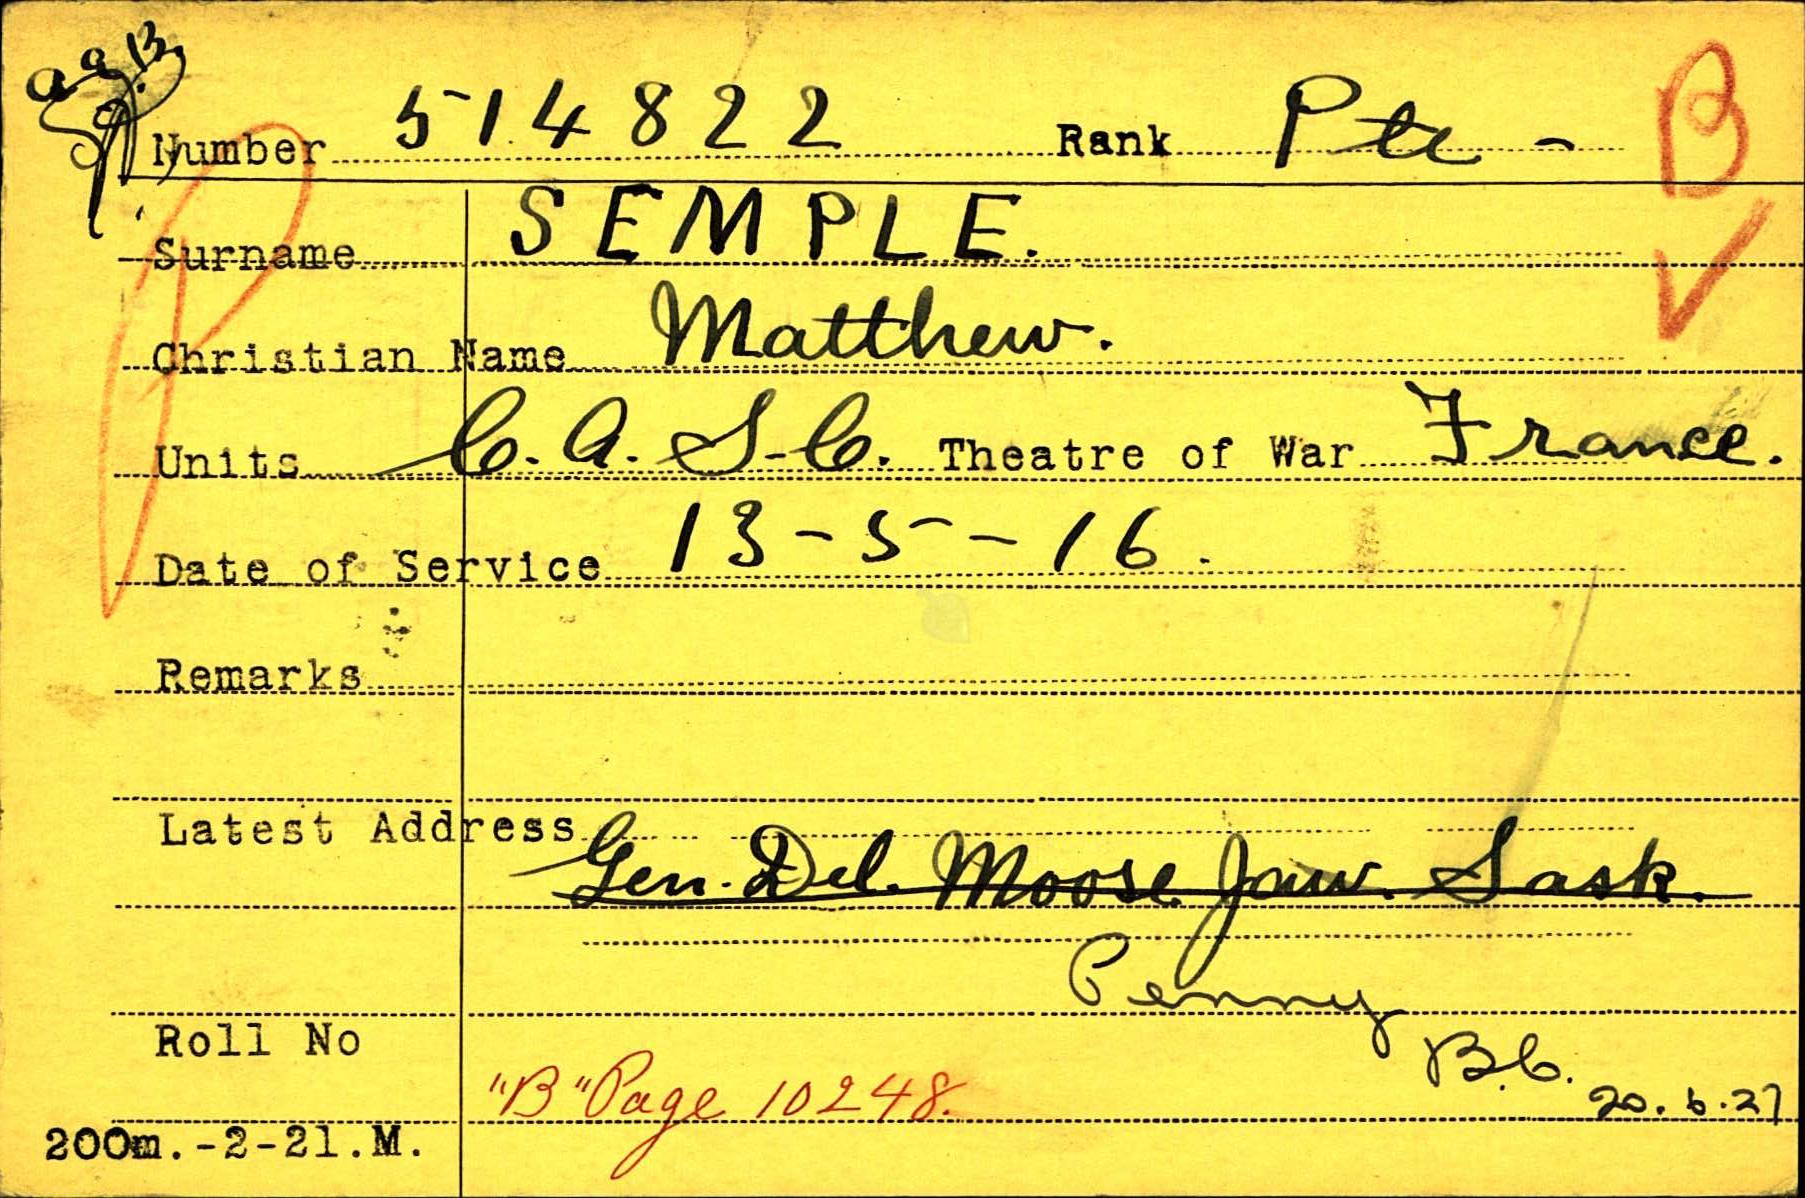 Number 514822 Rank Pte - B
Surname SEMPLE.
Christian Name Matthew.
Units C.A.S.C. Theatre of War France.
Date of Service 13-5-16.
Remarks
Latest Address
Gen. Del. Moose Jaw. Sask.
Penny
B.C.
Roll No
"B" Page 10248.
20.6.27
200m.-2-21.M.